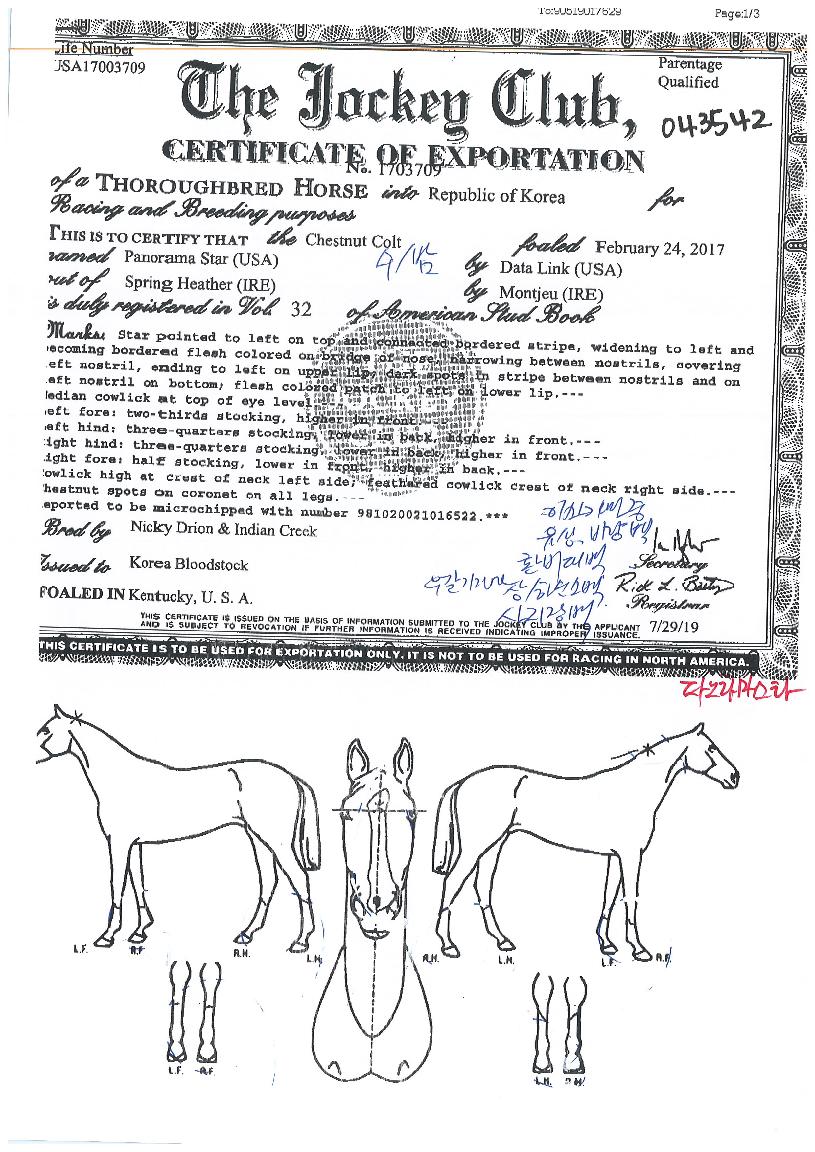 To:90519017629 Page:1/3
Life Number
USA17003709
Parentage
Qualified
The Jockey Club,
043542
CERTIFICATE OF EXPORTATION
No. 1703709
of a THOROUGHBRED HORSE into Republic of Korea for
Racing and Breeding purposes
THIS IS TO CERTIFY THAT the Chestnut Colt foaled February 24, 2017
named Panorama Star (USA) by Data Link (USA)
수/밤
out of Spring Heather (IRE) by Montjeu (IRE)
is duly registered in Vol. 32 of American Stud Book
Marks: Star pointed to left on top and connected bordered stripe, widening to left and
becoming bordered flesh colored on bridge of nose, narrowing between nostrils, covering
left nostril, ending to left on upper lip; dark spots in stripe between nostrils and on
left nostril on bottom; flesh colored patch to left on lower lip.---
Median cowlick at top of eye level.---
Left fore: two-thirds stocking, higher in front.---
Left hind: three-quarters stocking, lower in back, higher in front.---
Right hind: three-quarters stocking, lower in back, higher in front.---
Right fore: half stocking, lower in front, higher in back.---
Cowlick high at crest of neck left side; feathered cowlick crest of neck right side.---
Chestnut spots on coronet on all legs.---
Reported to be microchipped with number 981020021016522.***
Bred by Nicky Drion & Indian Creek
Secretary
Issued to Korea Bloodstock
Rick L. Bailey
Registrar
FOALED IN Kentucky, U. S. A.
THIS CERTIFICATE IS ISSUED ON THE BASIS OF INFORMATION SUBMITTED TO THE JOCKEY CLUB BY THE APPLICANT
AND IS SUBJECT TO REVOCATION IF FURTHER INFORMATION IS RECEIVED INDICATING IMPROPER ISSUANCE. 7/29/19
THIS CERTIFICATE IS TO BE USED FOR EXPORTATION ONLY. IT IS NOT TO BE USED FOR RACING IN NORTH AMERICA.
파노라마스타
L.F. R.F. R.H. L.H. R.H. L.H. L.F. R.F.
L.F. R.F. L.H. R.H.